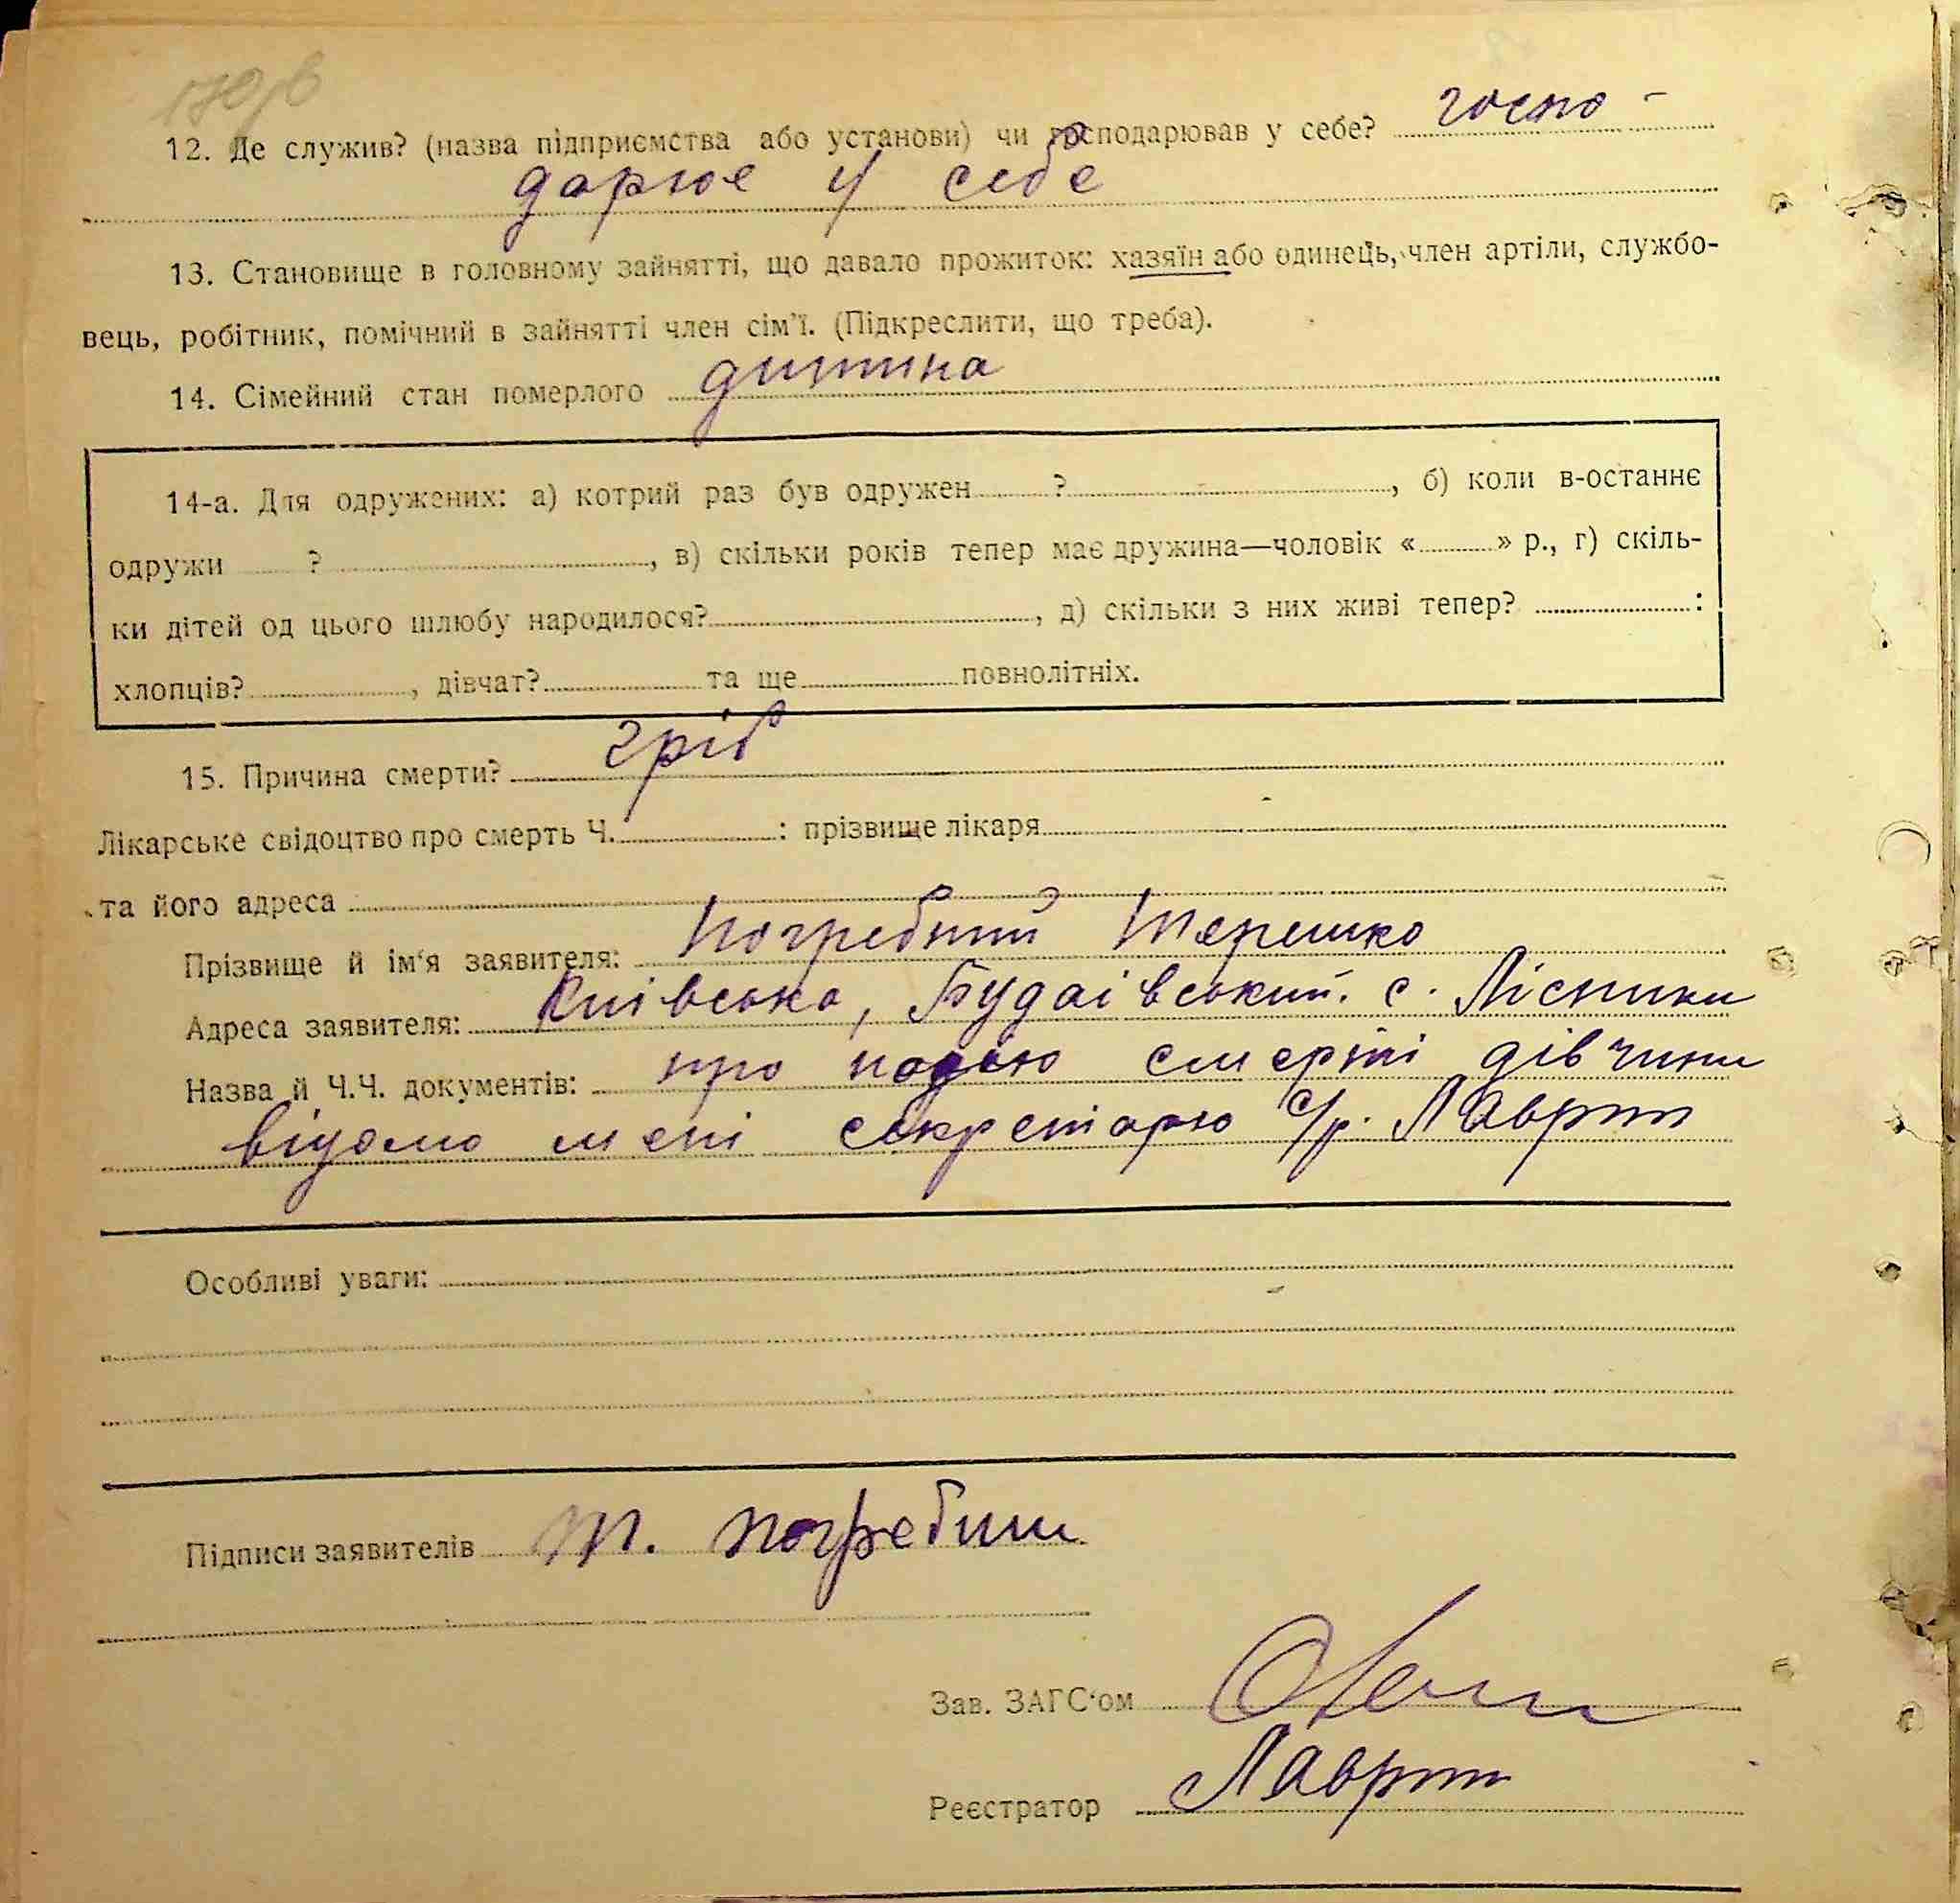 12. Де служив? (назва підприємства або установи) чи господарював у себе? госпо-
дарює у себе
13. Становище в головному зайнятті, що давало прожиток: хазяїн або одинець, член артіли, службо-
вець, робітник, помічний в зайнятті член сім'ї. (Підкреслити, що треба).
14. Сімейний стан померлого дитина
14-а. Для одружених: а) котрий раз був одружен ? , б) коли в-останнє
одружи ? , в) скільки років тепер має дружина—чоловік « » р., г) скіль-
ки дітей од цього шлюбу народилося? , д) скільки з них живі тепер? :
хлопців? , дівчат? та ще повнолітніх.
15. Причина смерти? гріб
Лікарське свідоцтво про смерть Ч. : прізвище лікаря
та його адреса
Прізвище й ім'я заявителя: Погребний Терешко
Адреса заявителя: Київська, Будаівський. с. Лісники
Назва й Ч.Ч. документів: про подію смерти дівчини
відомо мені секретарю с/р. Лаврин
Особливі уваги:
Підписи заявителів Т. Погребний
Зав. ЗАГС'ом
Реєстратор Лаврин